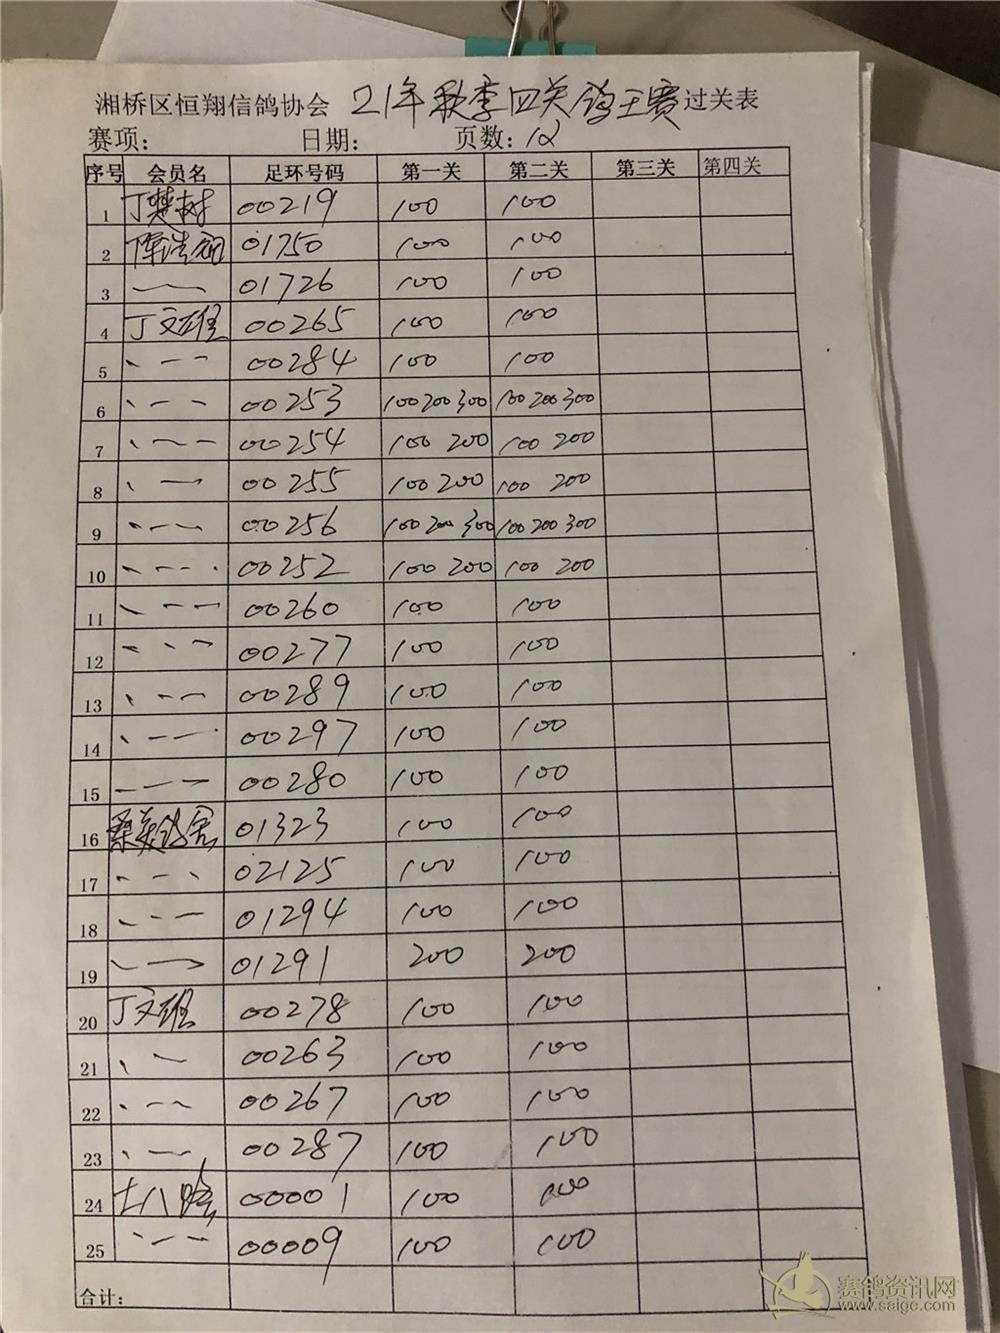 湘桥区恒翔信鸽协会 21年秋季四关鸽王赛过关表
赛项: 日期: 页数: 12
序号 会员名 足环号码 第一关 第二关 第三关 第四关
1 丁楚树 00219 100 100
2 01750 100 100
3 01726 100 100
4 丁文雄 00265 100 100
5 00284 100 100
6 00253 100 200 300 100 200 300
7 00254 100 200 100 200
8 00255 100 200 100 200
9 00256 100 200 300 100 200 300
10 00252 100 200 100 200
11 00260 100 100
12 00277 100 100
13 00289 100 100
14 00297 100 100
15 00280 100 100
16 桑美鸽舍 01323 100 100
17 02125 100 100
18 01294 100 100
19 01291 200 200
20 丁文雄 00278 100 100
21 00263 100 100
22 00267 100 100
23 00287 100 100
24 00001 100 100
25 00009 100 100
合计:
赛鸽资讯网
www.saige.com